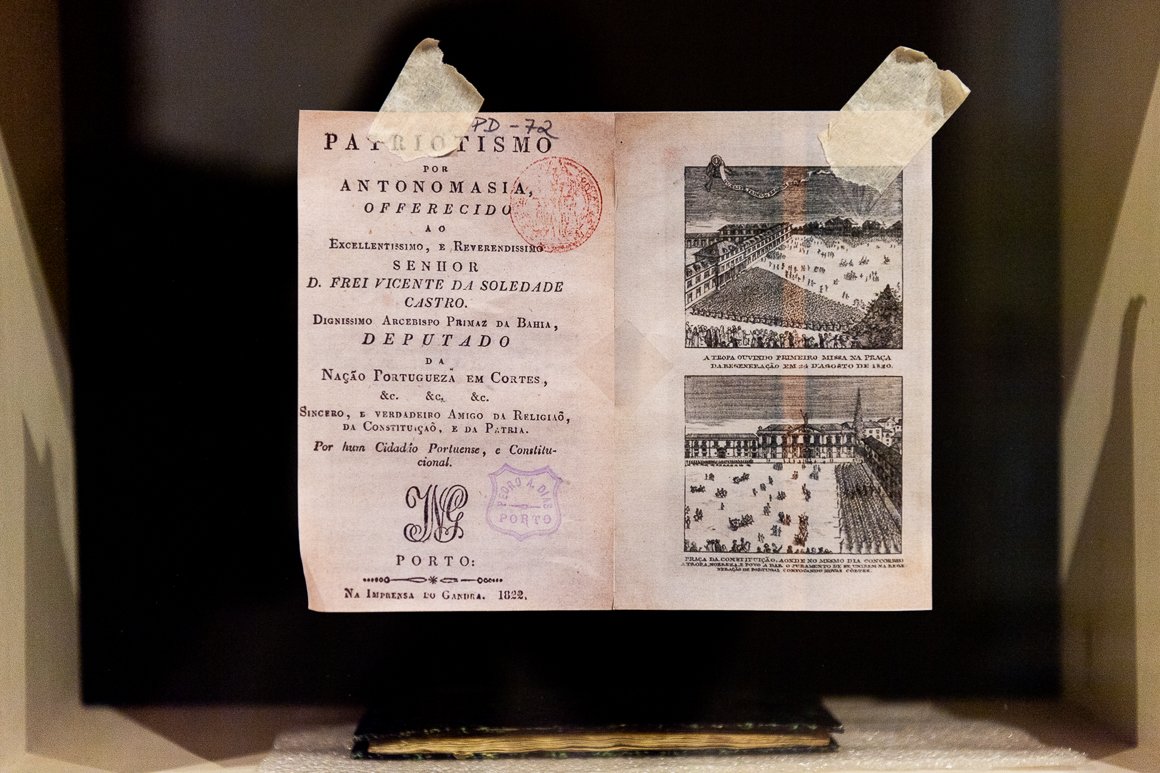 PD-72
PATRIOTISMO
POR
ANTONOMASIA,
OFFERECIDO
AO
EXCELLENTISSIMO, E REVERENDISSIMO
SENHOR
D. FREI VICENTE DA SOLEDADE
CASTRO.
DIGNISSIMO ARCEBISPO PRIMAZ DA BAHIA,
DEPUTADO
DA
NAÇÃO PORTUGUEZA EM CORTES,
&c. &c. &c.
SINCERO, E VERDADEIRO AMIGO DA RELIGIAÕ,
DA CONSTITUIÇAÕ, E DA PATRIA.
Por hum Cidadão Portuense, e Constitu-
cional.
PEDRO A. DIAS
PORTO
PORTO:
NA IMPRENSA DO GANDRA. 1822.
A TROPA OUVINDO PRIMEIRO MISSA NA PRAÇA
DA REGENERAÇÃO EM 24 D'AGOSTO DE 1820.
PRAÇA DA CONSTITUIÇÃO, AONDE NO MESMO DIA CONCORREO
A TROPA, NOBREZA, E POVO A DAR O JURAMENTO DE NA REGE-
NERAÇÃO DE PORTUGAL CONVOCANDO NOVAS CÔRTES.